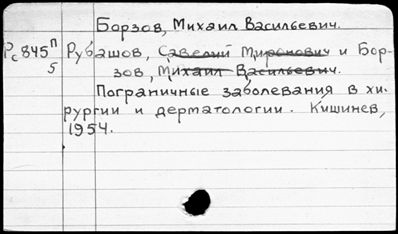 Борзов, Михаил Васильевич.
Рс845 П/5 Рубашов, Савелий Миронович и Бор-
зов, Михаил Васильевич.
Пограничные заболевания в хи-
рургии и дерматологии. Кишинев,
1954.